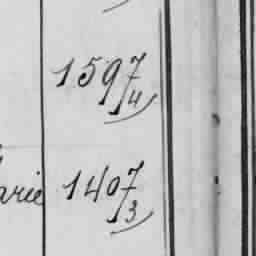 1597/4
arie 1407/3